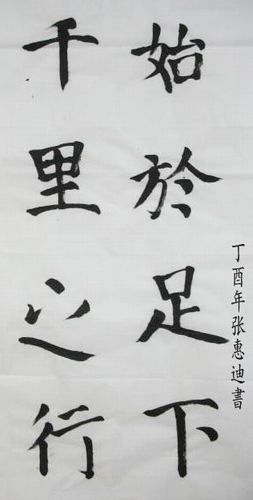 千里之行
始於足下
丁酉年张惠迪書